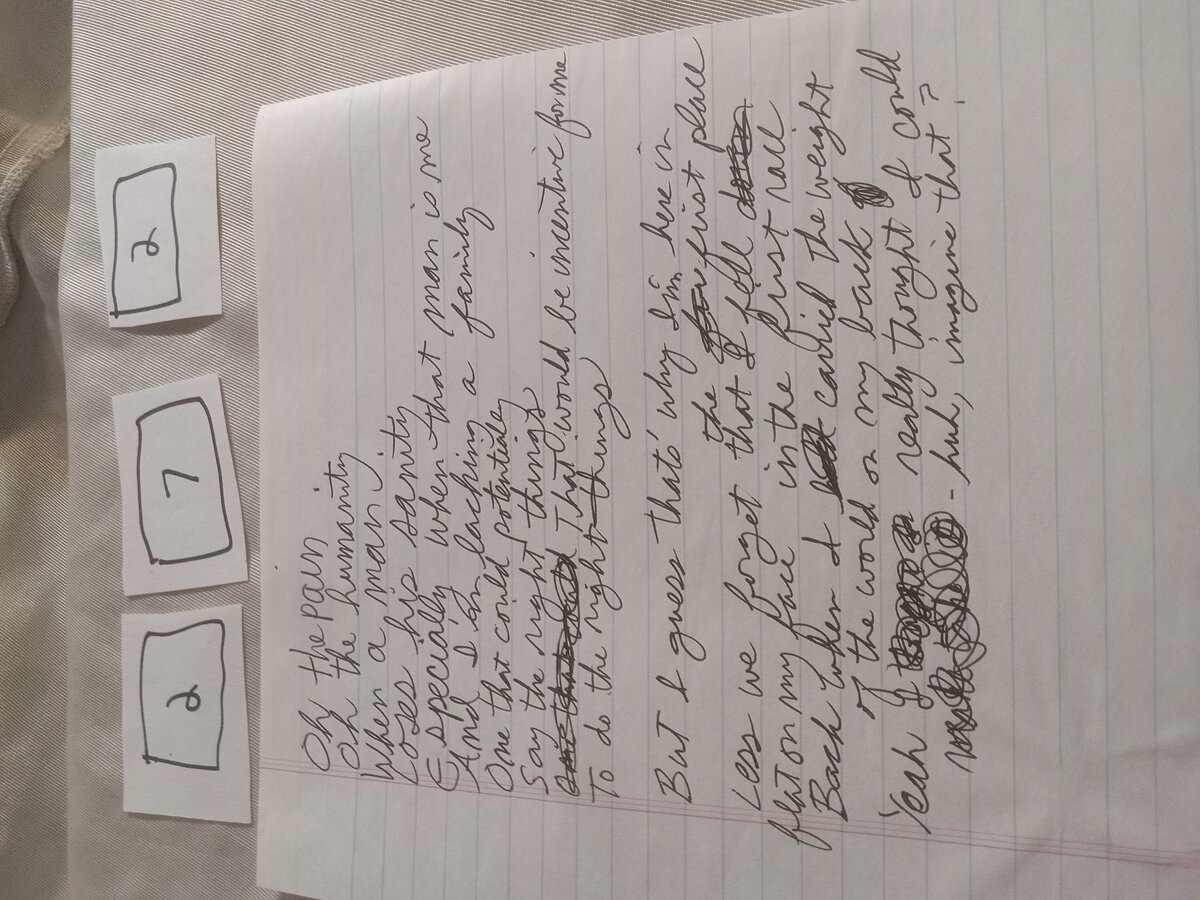 2 7 2
Oh the pain
Oh the humanity
When a man
Loses his sanity
Especially when that man is me
And I'm lacking a family
One that could potentialey
Say the right things
That would be incentive for me
To do the right things
But I guess thats' why I'm here in
the first place
Less we forget that I fell
flat on my face in the first rall
Back when I carried the weight
of the world on my back
Yeah I really thought I could
- huh, imagine that?